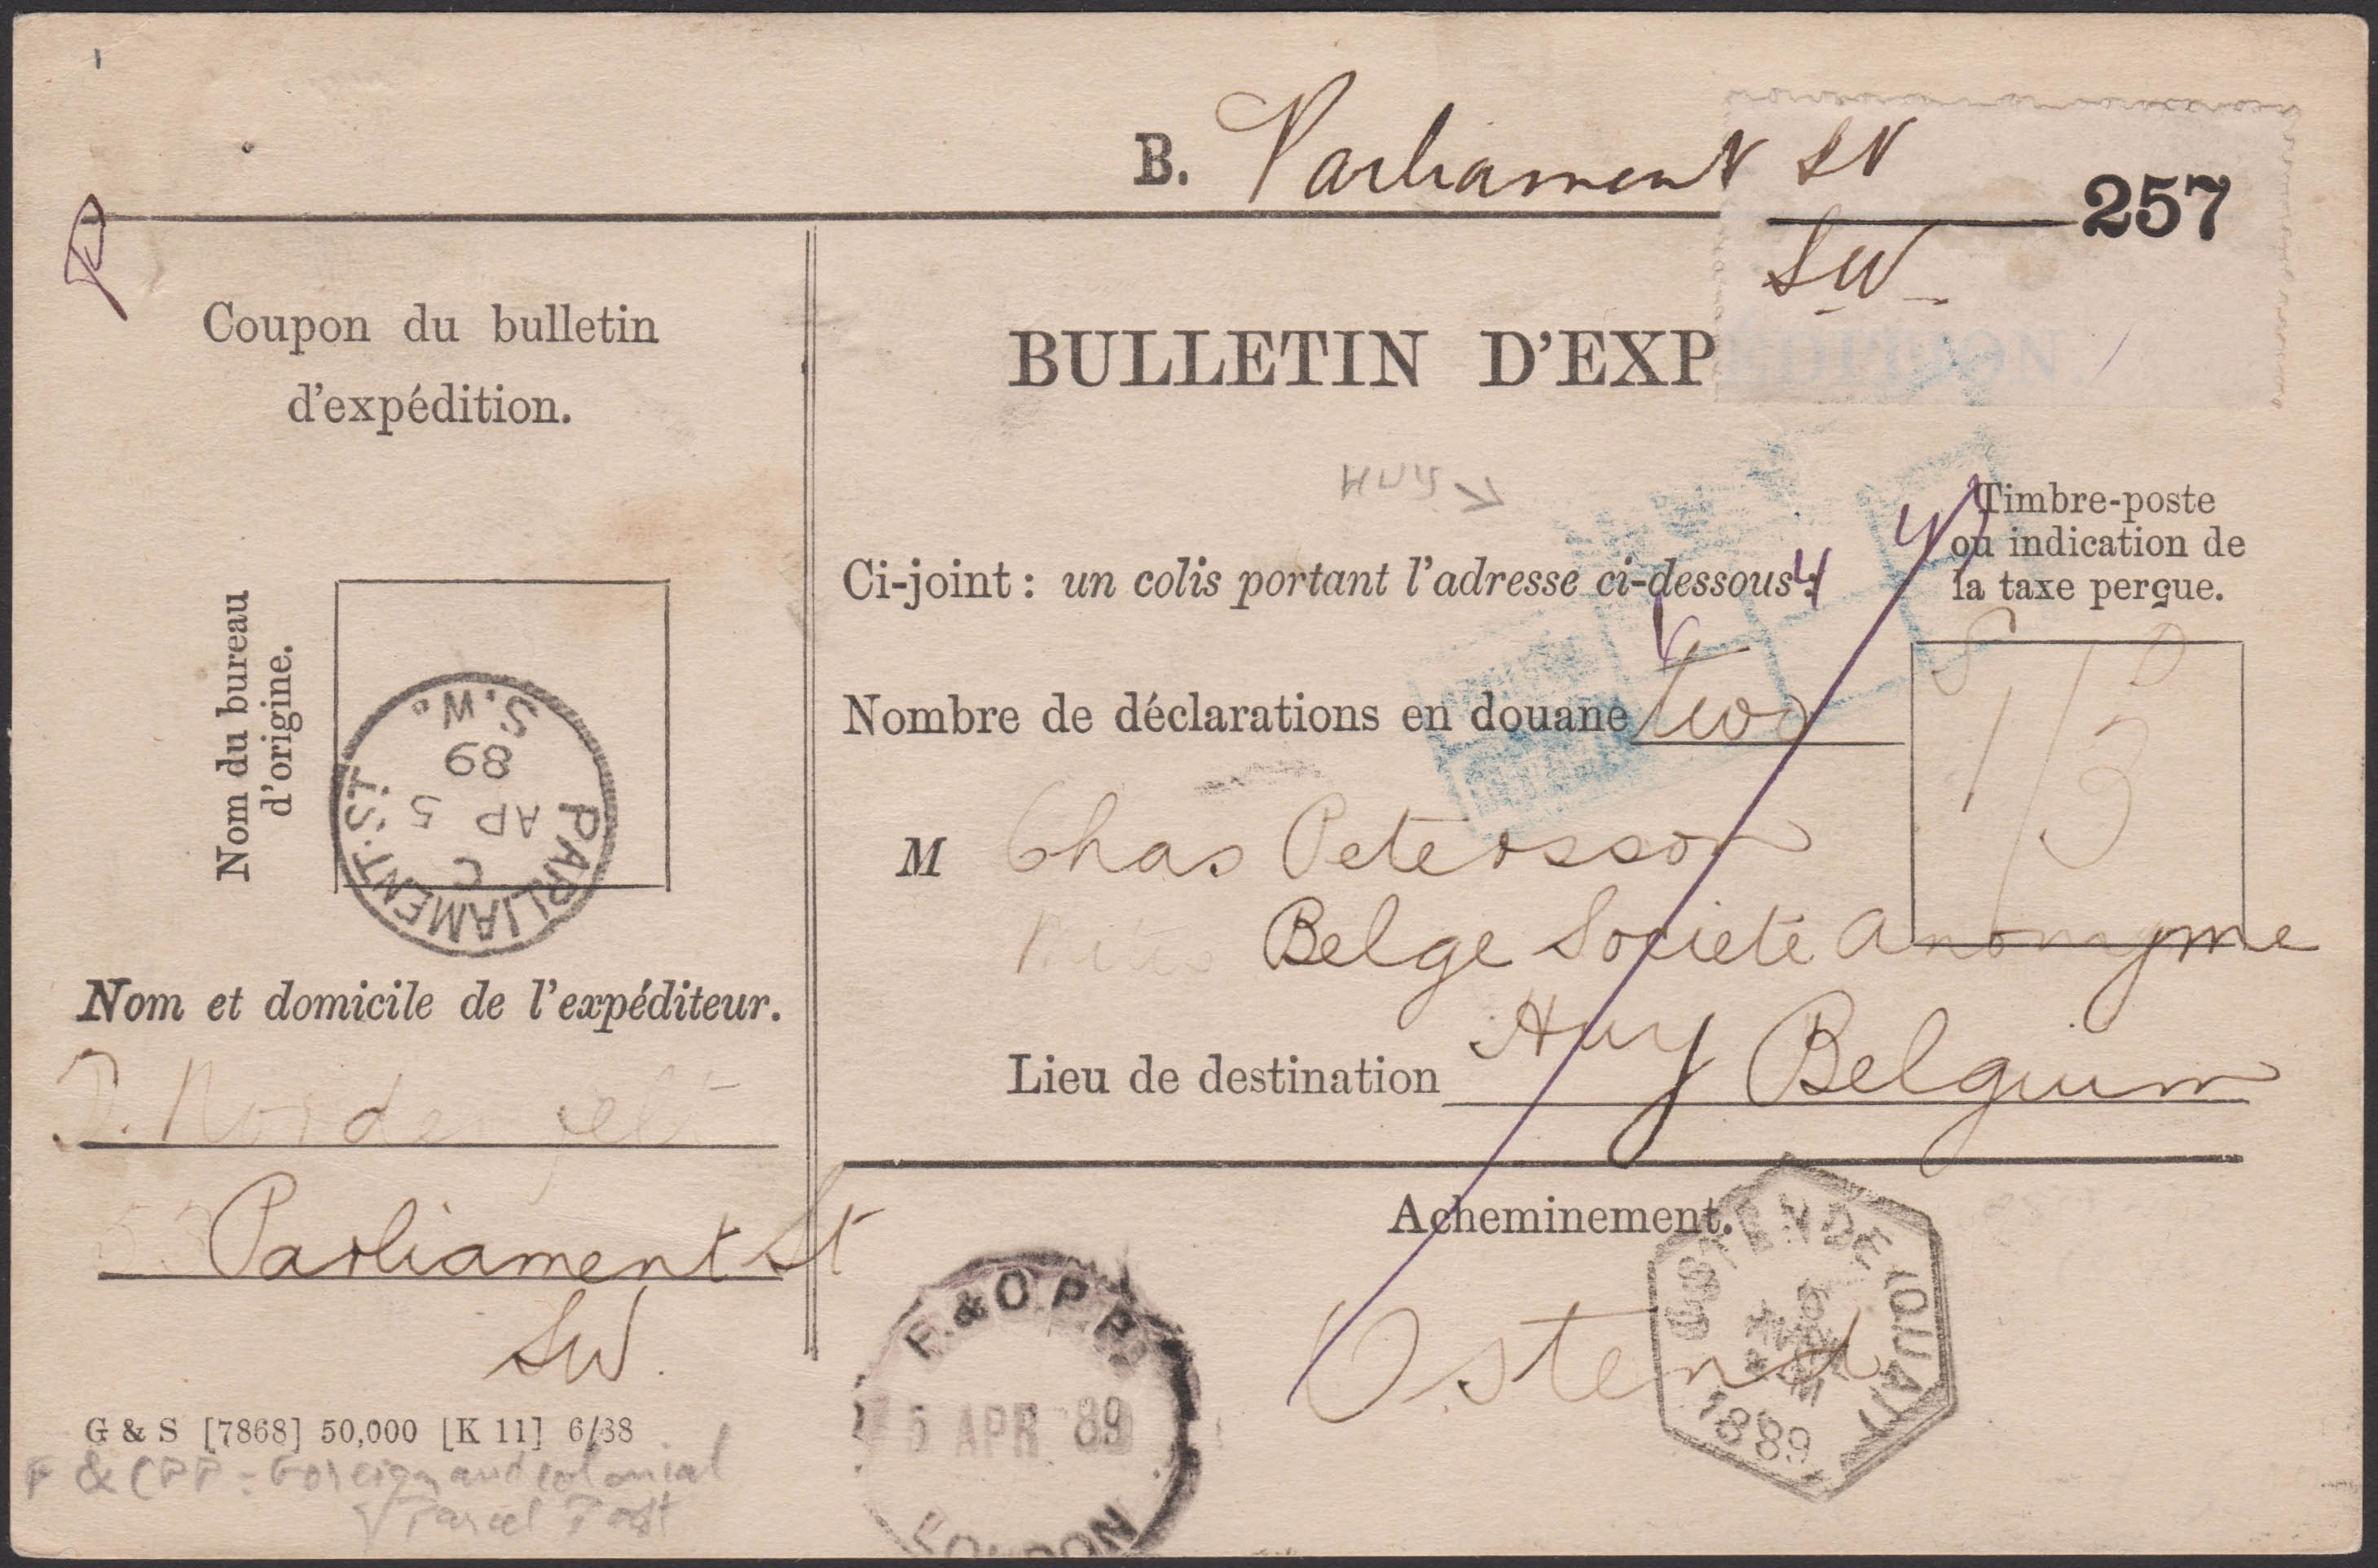 B. Parliament St
257
SW
Coupon du bulletin
d'expédition.
BULLETIN D'EXPÉDITION
HUY
Timbre-poste
ou indication de
la taxe perçue.
Ci-joint : un colis portant l'adresse ci-dessous :
S D
1/3
Nombre de déclarations en douane two
Nom du bureau
d'origine.
PARLIAMENT. ST.
C
AP 5
89
S.W.
M Chas Petersson
Belge Societé Anonyme
Nom et domicile de l'expéditeur.
Huy Belgium
Lieu de destination
53 Parliament St
SW.
Acheminement.
Ostend
OSTENDE (QUAI)
1889
F. & C. P. P.
5 APR 89
LONDON
G & S [7868] 50,000 [K 11] 6/88
F & CPP = Foreign and colonial
Parcel Post